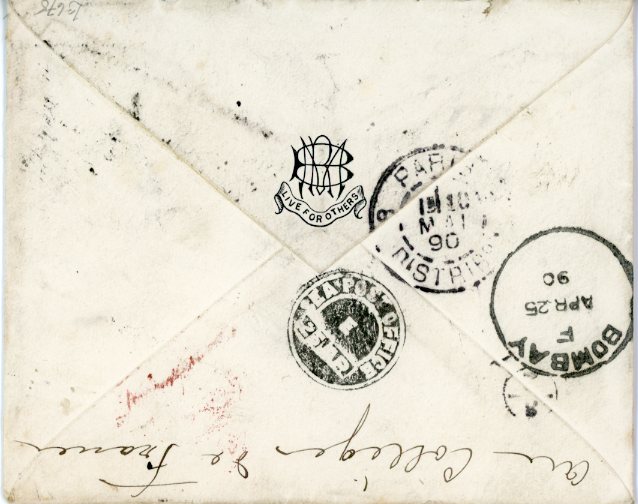 LIVE FOR OTHERS
PARIS
MAI
90
DISTRIB
SEA POST OFFICE
BOMBAY
F
APR.25
90
au Collège de France